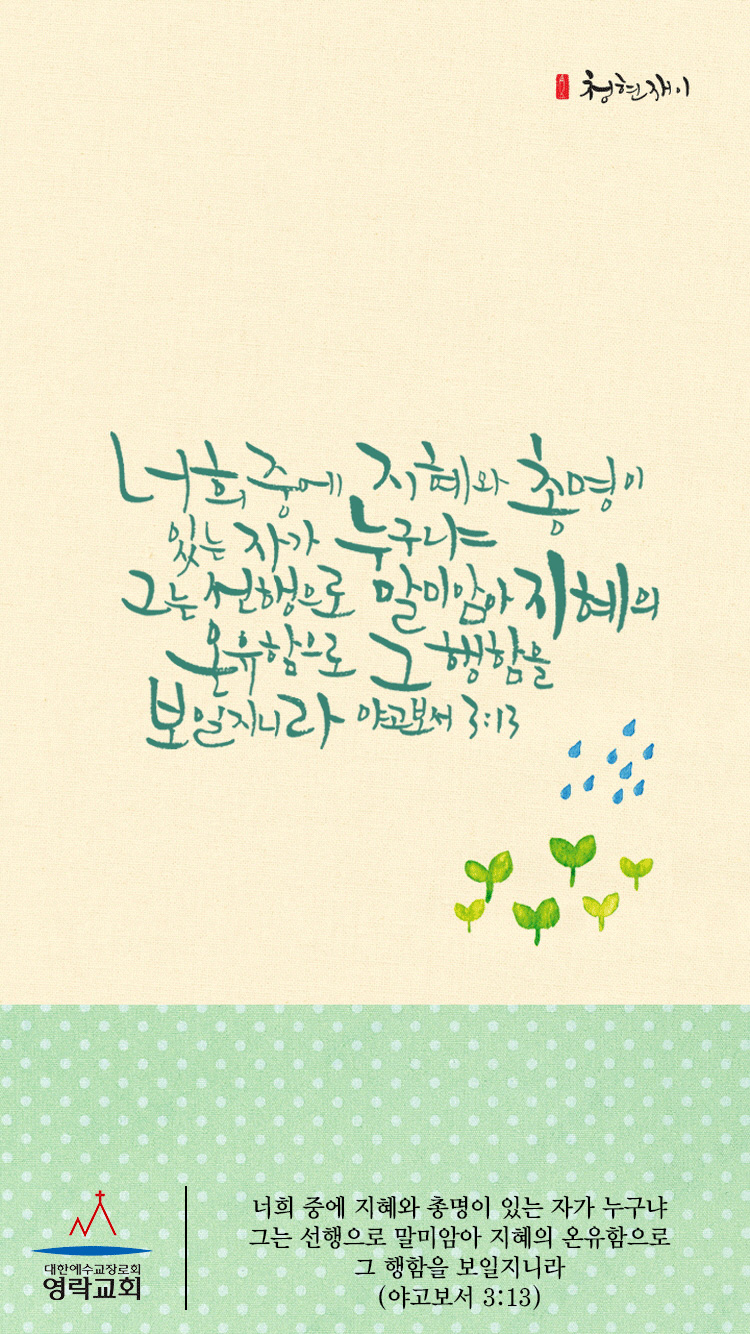 청현재이
너희 중에 지혜와 총명이
있는 자가 누구냐
그는 선행으로 말미암아 지혜의
온유함으로 그 행함을
보일지니라 야고보서 3:13
대한예수교장로회
영락교회
너희 중에 지혜와 총명이 있는 자가 누구냐
그는 선행으로 말미암아 지혜의 온유함으로
그 행함을 보일지니라
(야고보서 3:13)